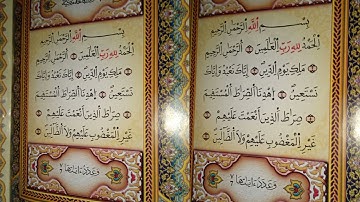 بِسْمِ اللَّهِ الرَّحْمَٰنِ الرَّحِيمِ
الْحَمْدُ لِلَّهِ رَبِّ الْعَٰلَمِينَ الرَّحْمَٰنِ الرَّحِيمِ
مَٰلِكِ يَوْمِ الدِّينِ إِيَّاكَ نَعْبُدُ وَإِيَّاكَ
نَسْتَعِينُ اهْدِنَا الصِّرَٰطَ الْمُسْتَقِيمَ
صِرَٰطَ الَّذِينَ أَنْعَمْتَ عَلَيْهِمْ
غَيْرِ الْمَغْضُوبِ عَلَيْهِمْ وَلَا الضَّالِّينَ
وَعَدَدُ ءَايَاتِهَا ٧
بِسْمِ اللَّهِ الرَّحْمَٰنِ الرَّحِيمِ
الْحَمْدُ لِلَّهِ رَبِّ الْعَٰلَمِينَ الرَّحْمَٰنِ الرَّحِيمِ
مَٰلِكِ يَوْمِ الدِّينِ إِيَّاكَ نَعْبُدُ وَإِيَّاكَ
نَسْتَعِينُ اهْدِنَا الصِّرَٰطَ الْمُسْتَقِيمَ
صِرَٰطَ الَّذِينَ أَنْعَمْتَ عَلَيْهِمْ
غَيْرِ الْمَغْضُوبِ عَلَيْهِمْ وَلَا الضَّالِّينَ
وَعَدَدُ ءَايَاتِهَا ٧